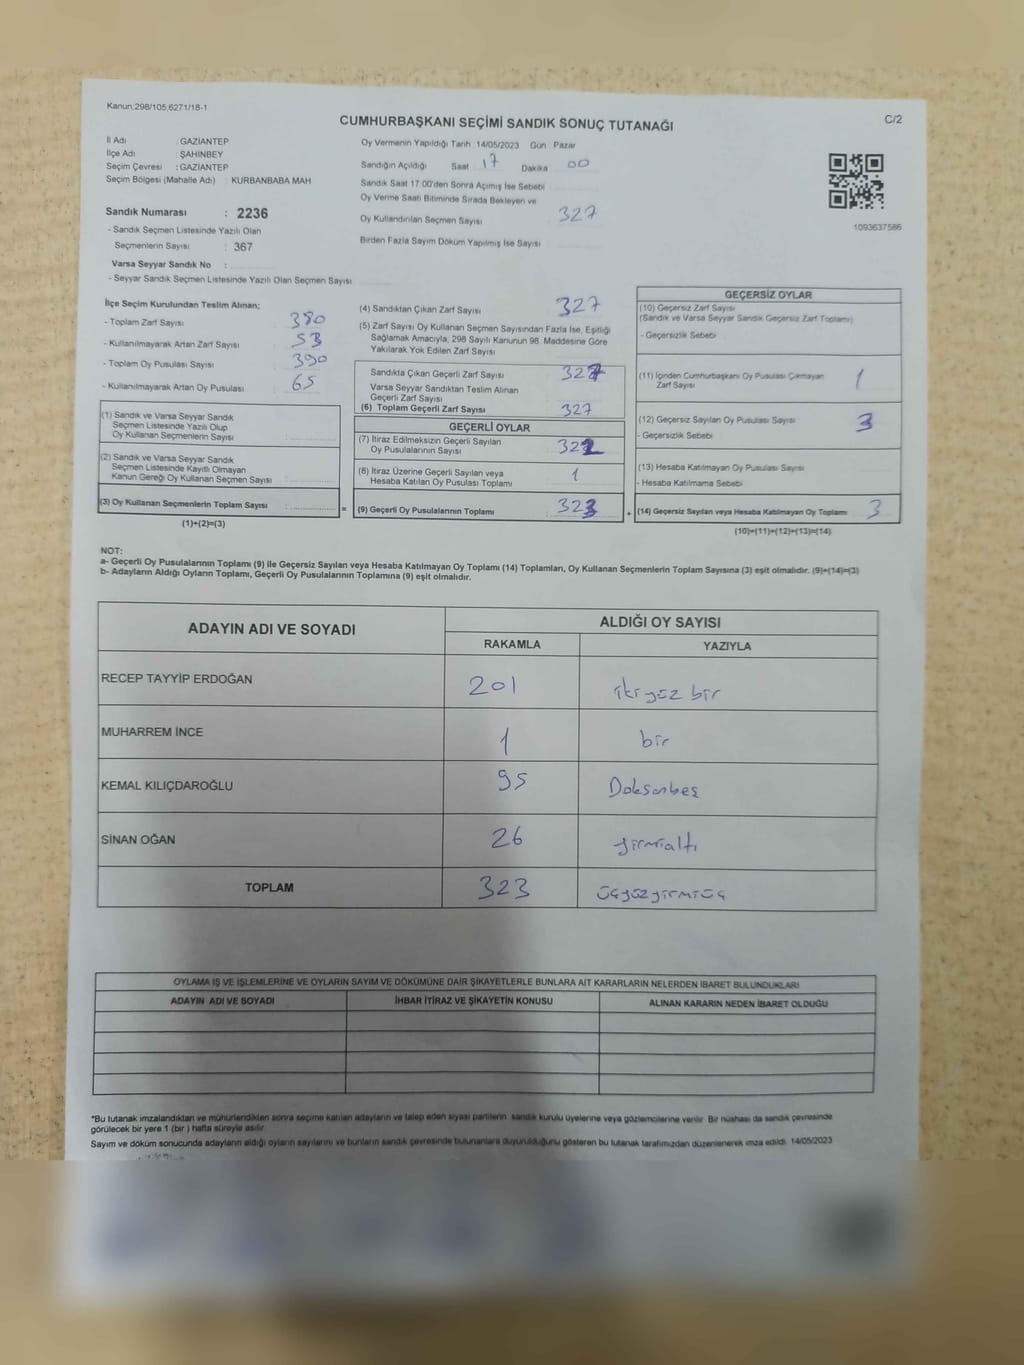 Kanun:298/105,6271/18-1
CUMHURBAŞKANI SEÇİMİ SANDIK SONUÇ TUTANAĞI
C/2
İl Adı : GAZİANTEP
İlçe Adı : ŞAHİNBEY
Seçim Çevresi : GAZİANTEP
Seçim Bölgesi (Mahalle Adı) : KURBANBABA MAH
Sandık Numarası : 2236
- Sandık Seçmen Listesinde Yazılı Olan
Seçmenlerin Sayısı : 367
Varsa Seyyar Sandık No :
- Seyyar Sandık Seçmen Listesinde Yazılı Olan Seçmen Sayısı
Oy Vermenin Yapıldığı Tarih 14/05/2023 Gün Pazar
Sandığın Açıldığı Saat 17 Dakika 00
Sandık Saat 17:00'den Sonra Açımış İse Sebebi
Oy Verme Saati Bitiminde Sırada Bekleyen ve
Oy Kullandırılan Seçmen Sayısı 327
Birden Fazla Sayım Döküm Yapılmış İse Sayısı
1093637586
İlçe Seçim Kurulundan Teslim Alınan;
- Toplam Zarf Sayısı 380
- Kullanılmayarak Artan Zarf Sayısı 53
- Toplam Oy Pusulası Sayısı 390
- Kullanılmayarak Artan Oy Pusulası 65
(1) Sandık ve Varsa Seyyar Sandık
Seçmen Listesinde Yazılı Olup
Oy Kullanan Seçmenlerin Sayısı :
(2) Sandık ve Varsa Seyyar Sandık
Seçmen Listesinde Kayıtlı Olmayan
Kanun Gereği Oy Kullanan Seçmen Sayısı :
(3) Oy Kullanan Seçmenlerin Toplam Sayısı : =
(1)+(2)=(3)
(4) Sandıktan Çıkan Zarf Sayısı 327
(5) Zarf Sayısı Oy Kullanan Seçmen Sayısından Fazla İse, Eşitliği
Sağlamak Amacıyla, 298 Sayılı Kanunun 98. Maddesine Göre
Yakılarak Yok Edilen Zarf Sayısı
Sandıkta Çıkan Geçerli Zarf Sayısı 327
Varsa Seyyar Sandıktan Teslim Alınan
Geçerli Zarf Sayısı
(6) Toplam Geçerli Zarf Sayısı 327
GEÇERLİ OYLAR
(7) İtiraz Edilmeksizin Geçerli Sayılan
Oy Pusulalarının Sayısı 322
(8) İtiraz Üzerine Geçerli Sayılan veya
Hesaba Katılan Oy Pusulası Toplamı 1
(9) Geçerli Oy Pusulalarının Toplamı 323 +
GEÇERSİZ OYLAR
(10) Geçersiz Zarf Sayısı
(Sandık ve Varsa Seyyar Sandık Geçersiz Zarf Toplamı)
- Geçersizlik Sebebi
(11) İçinden Cumhurbaşkanı Oy Pusulası Çıkmayan
Zarf Sayısı 1
(12) Geçersiz Sayılan Oy Pusulası Sayısı 3
- Geçersizlik Sebebi
(13) Hesaba Katılmayan Oy Pusulası Sayısı
- Hesaba Katılmama Sebebi
(14) Geçersiz Sayılan veya Hesaba Katılmayan Oy Toplamı 3
(10)+(11)+(12)+(13)=(14)
NOT:
a- Geçerli Oy Pusulalarının Toplamı (9) ile Geçersiz Sayılan veya Hesaba Katılmayan Oy Toplamı (14) Toplamları, Oy Kullanan Seçmenlerin Toplam Sayısına (3) eşit olmalıdır. (9)+(14)=(3)
b- Adayların Aldığı Oyların Toplamı, Geçerli Oy Pusulalarının Toplamına (9) eşit olmalıdır.
ADAYIN ADI VE SOYADI
ALDIĞI OY SAYISI
RAKAMLA YAZIYLA
RECEP TAYYİP ERDOĞAN 201 ikiyüz bir
MUHARREM İNCE 1 bir
KEMAL KILIÇDAROĞLU 95 Doksanbeş
SİNAN OĞAN 26 yirmialtı
TOPLAM 323 üçyüzyirmiüç
OYLAMA İŞ VE İŞLEMLERİNE VE OYLARIN SAYIM VE DÖKÜMÜNE DAİR ŞİKAYETLERLE BUNLARA AİT KARARLARIN NELERDEN İBARET BULUNDUKLARI
ADAYIN ADI VE SOYADI İHBAR İTİRAZ VE ŞİKAYETİN KONUSU ALINAN KARARIN NEDEN İBARET OLDUĞU
*Bu tutanak imzalandıktan ve mühürlendikten sonra seçime katılan adayların ve talep eden siyasi partilerin sandık kurulu üyelerine veya gözlemcilerine verilir. Bir nüshası da sandık çevresinde
görülecek bir yere 1 (bir ) hafta süreyle asılır.
Sayım ve döküm sonucunda adayların aldığı oyların sayılarını ve bunların sandık çevresinde bulunanlara duyurulduğunu gösteren bu tutanak tarafımızdan düzenlenerek imza edildi. 14/05/2023